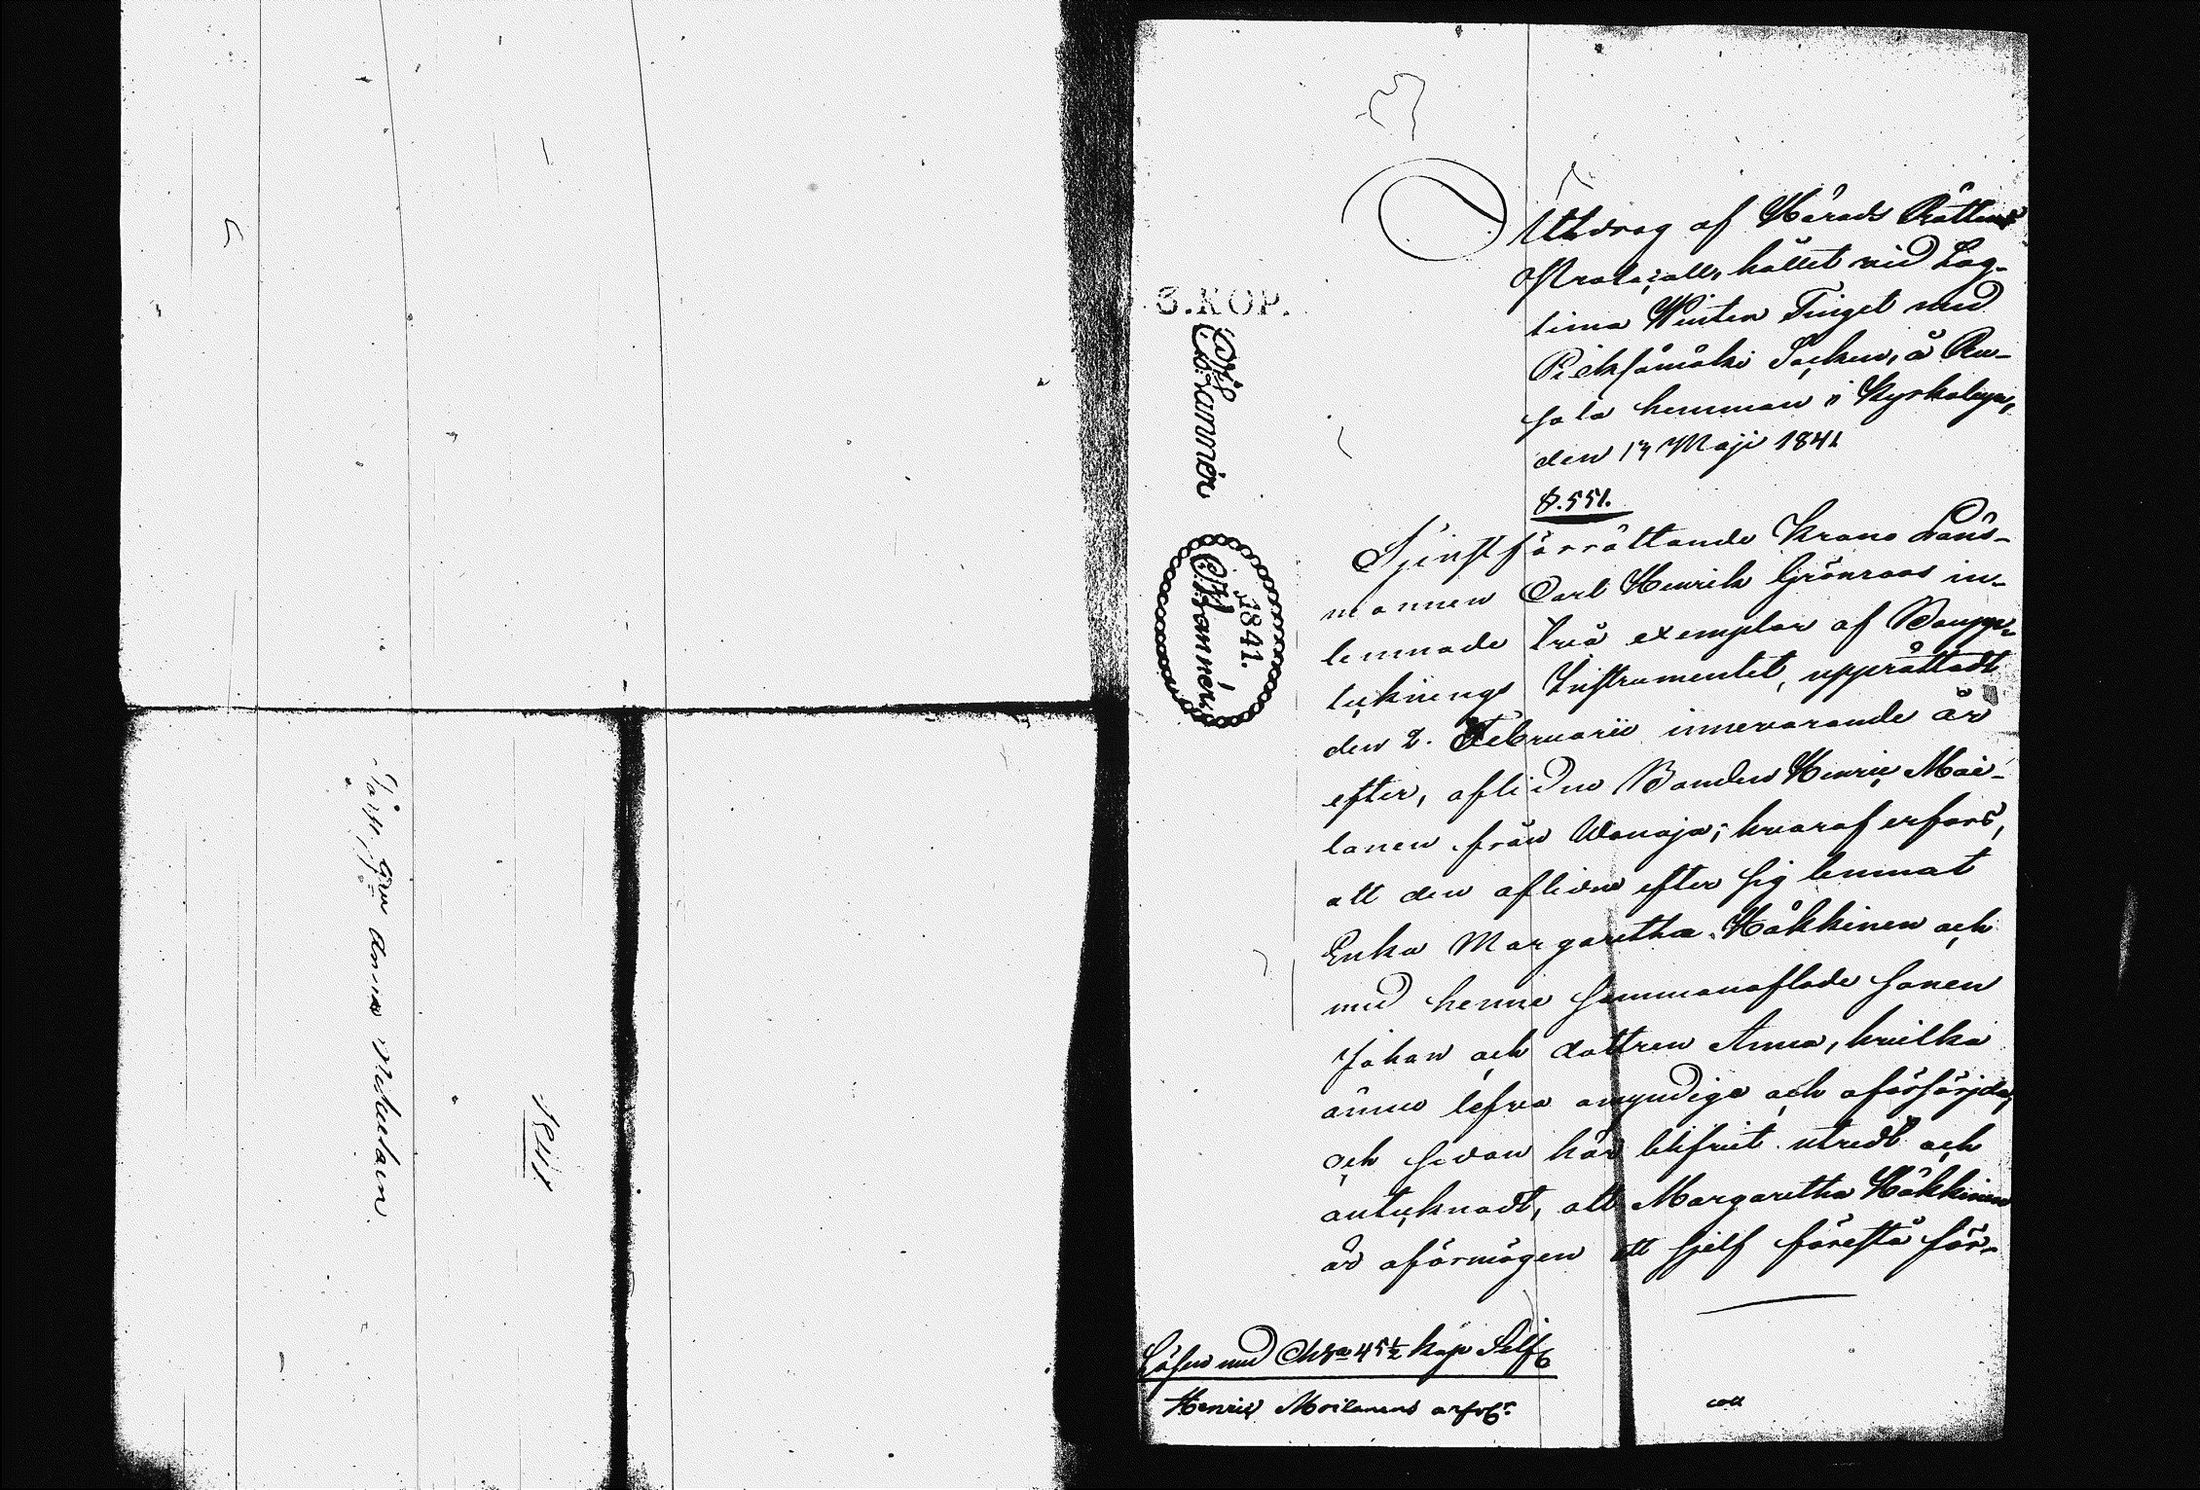 1841
3.KOP.
Ch. Stammeier
1841.
Utdrag af Härads Rättens
Protocoll, hållet vid Lag-
tima Winter Tinget med
Pieksämäki Socken, å
sala hemman i Kyrkobyn,
den 17 Maji 1841
§.551.
Tjenstförrättande Krono Läns-
mannen Carl Henrik Grönroos in-
lemnade två exemplar af Bouppe-
tecknings Instrumentet, upprättadt
den 2. Februarii innevarande år
efter, aflidne Bonden Henric Moi-
lanen från Wanaja; hvaraf erfors,
att den aflidne efter sig lemnat
Enka Margaretha Häkkinen och
med henne sammanaflade sonen
Johan och dottren Anna, hvilka
ännu lefva omyndige och oförsörjda,
och sedan här blifvit utredt och
antecknadt, att Margaretha Häkkinen
är oförmögen att sjelf förestå för-
Lösen med 45½ kop Silfr
Henric Moilanens arfvr
coll